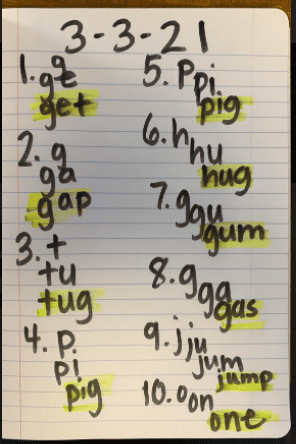 3-3-21
1. g
ge
get
2. g
ga
gap
3. t
tu
tug
4. p
pi
pig
5. p
pi
pig
6. h
hu
hug
7. g
gu
gum
8. g
ga
gas
9. j
ju
jum
jump
10. o
on
one